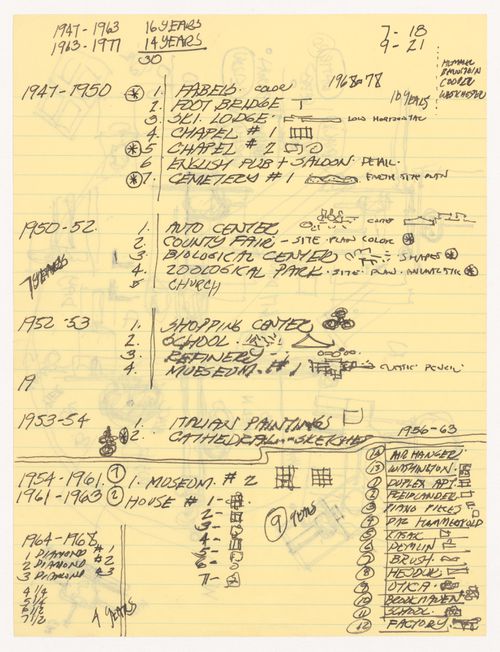 1947-1963 16 YEARS
1963-1977 14 YEARS
30
7-18
9-21
COOPER
1968-78
10 YEARS
1947-1950
* 1. FABELS. COLOR
2. FOOT BRIDGE
3. SKI. LODGE. LOW HORIZONTAL
4. CHAPEL # 1
* 5 CHAPEL # 2
6 ENGLISH PUB + SALOON. DETAIL.
* 7. CEMETERY # 1 EARTH SITE PLAN
1950-52.
7 YEARS
1. AUTO CENTER
2. COUNTY FAIR - SITE PLAN COLOR *
3. BIOLOGICAL CENTER SHAPES *
4. ZOOLOGICAL PARK. SITE. PLAN.
5 CHURCH
1952-53
1. SHOPPING CENTER
2. SCHOOL.
3. REFINERY -
4. MUESEUM. # 1 PENCIL
19
1953-54
1. ITALIAN PAINTINGS
* 2. CATHEDRAL - SKETCHES
1956-63
1954-1961. 1 1. MUSEUM. # 2
1961-1963 2 HOUSE # 1 -
2 -
3 -
4 -
5 -
6 -
7 -
9 YEARS
14 AIR HANGER.
13 WASHINGTON.
1 DUPLEX APT.
2 FREIDLANDER
3 PIANO PIECES
4 DAG HAMMERSKOLD
7 BRUSH
8 HEJDUK
9 UTICA
10 BROOKHAVEN
11 SCHOOL.
12 FACTORY
1964-1968
1 DIAMOND # 1
2 DIAMOND # 2
3 DIAMOND # 3
4 1/4
5 1/2
7 1/2
4 YEARS